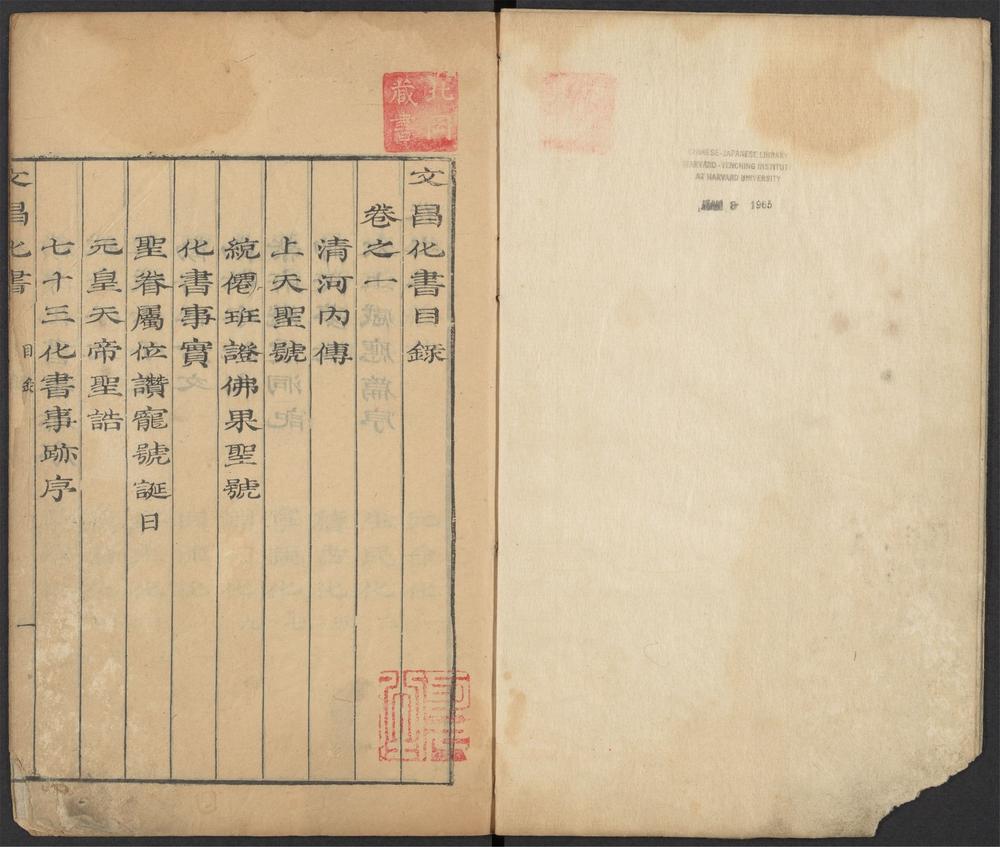 CHINESE-JAPANESE LIBRARY
HARVARD-YENCHING INSTITUTE
AT HARVARD UNIVERSITY
8 1965
北岡
藏書
文昌化書目錄
卷之一
清河內傳
上天聖號
統僊班證佛果聖號
化書事實
聖眷屬位讚寵號誕日
元皇天帝聖誥
七十三化書事跡序
文昌化書 目錄 一